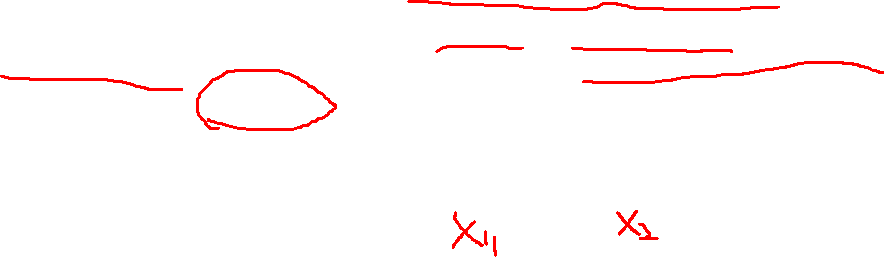 x₁₁ x₂